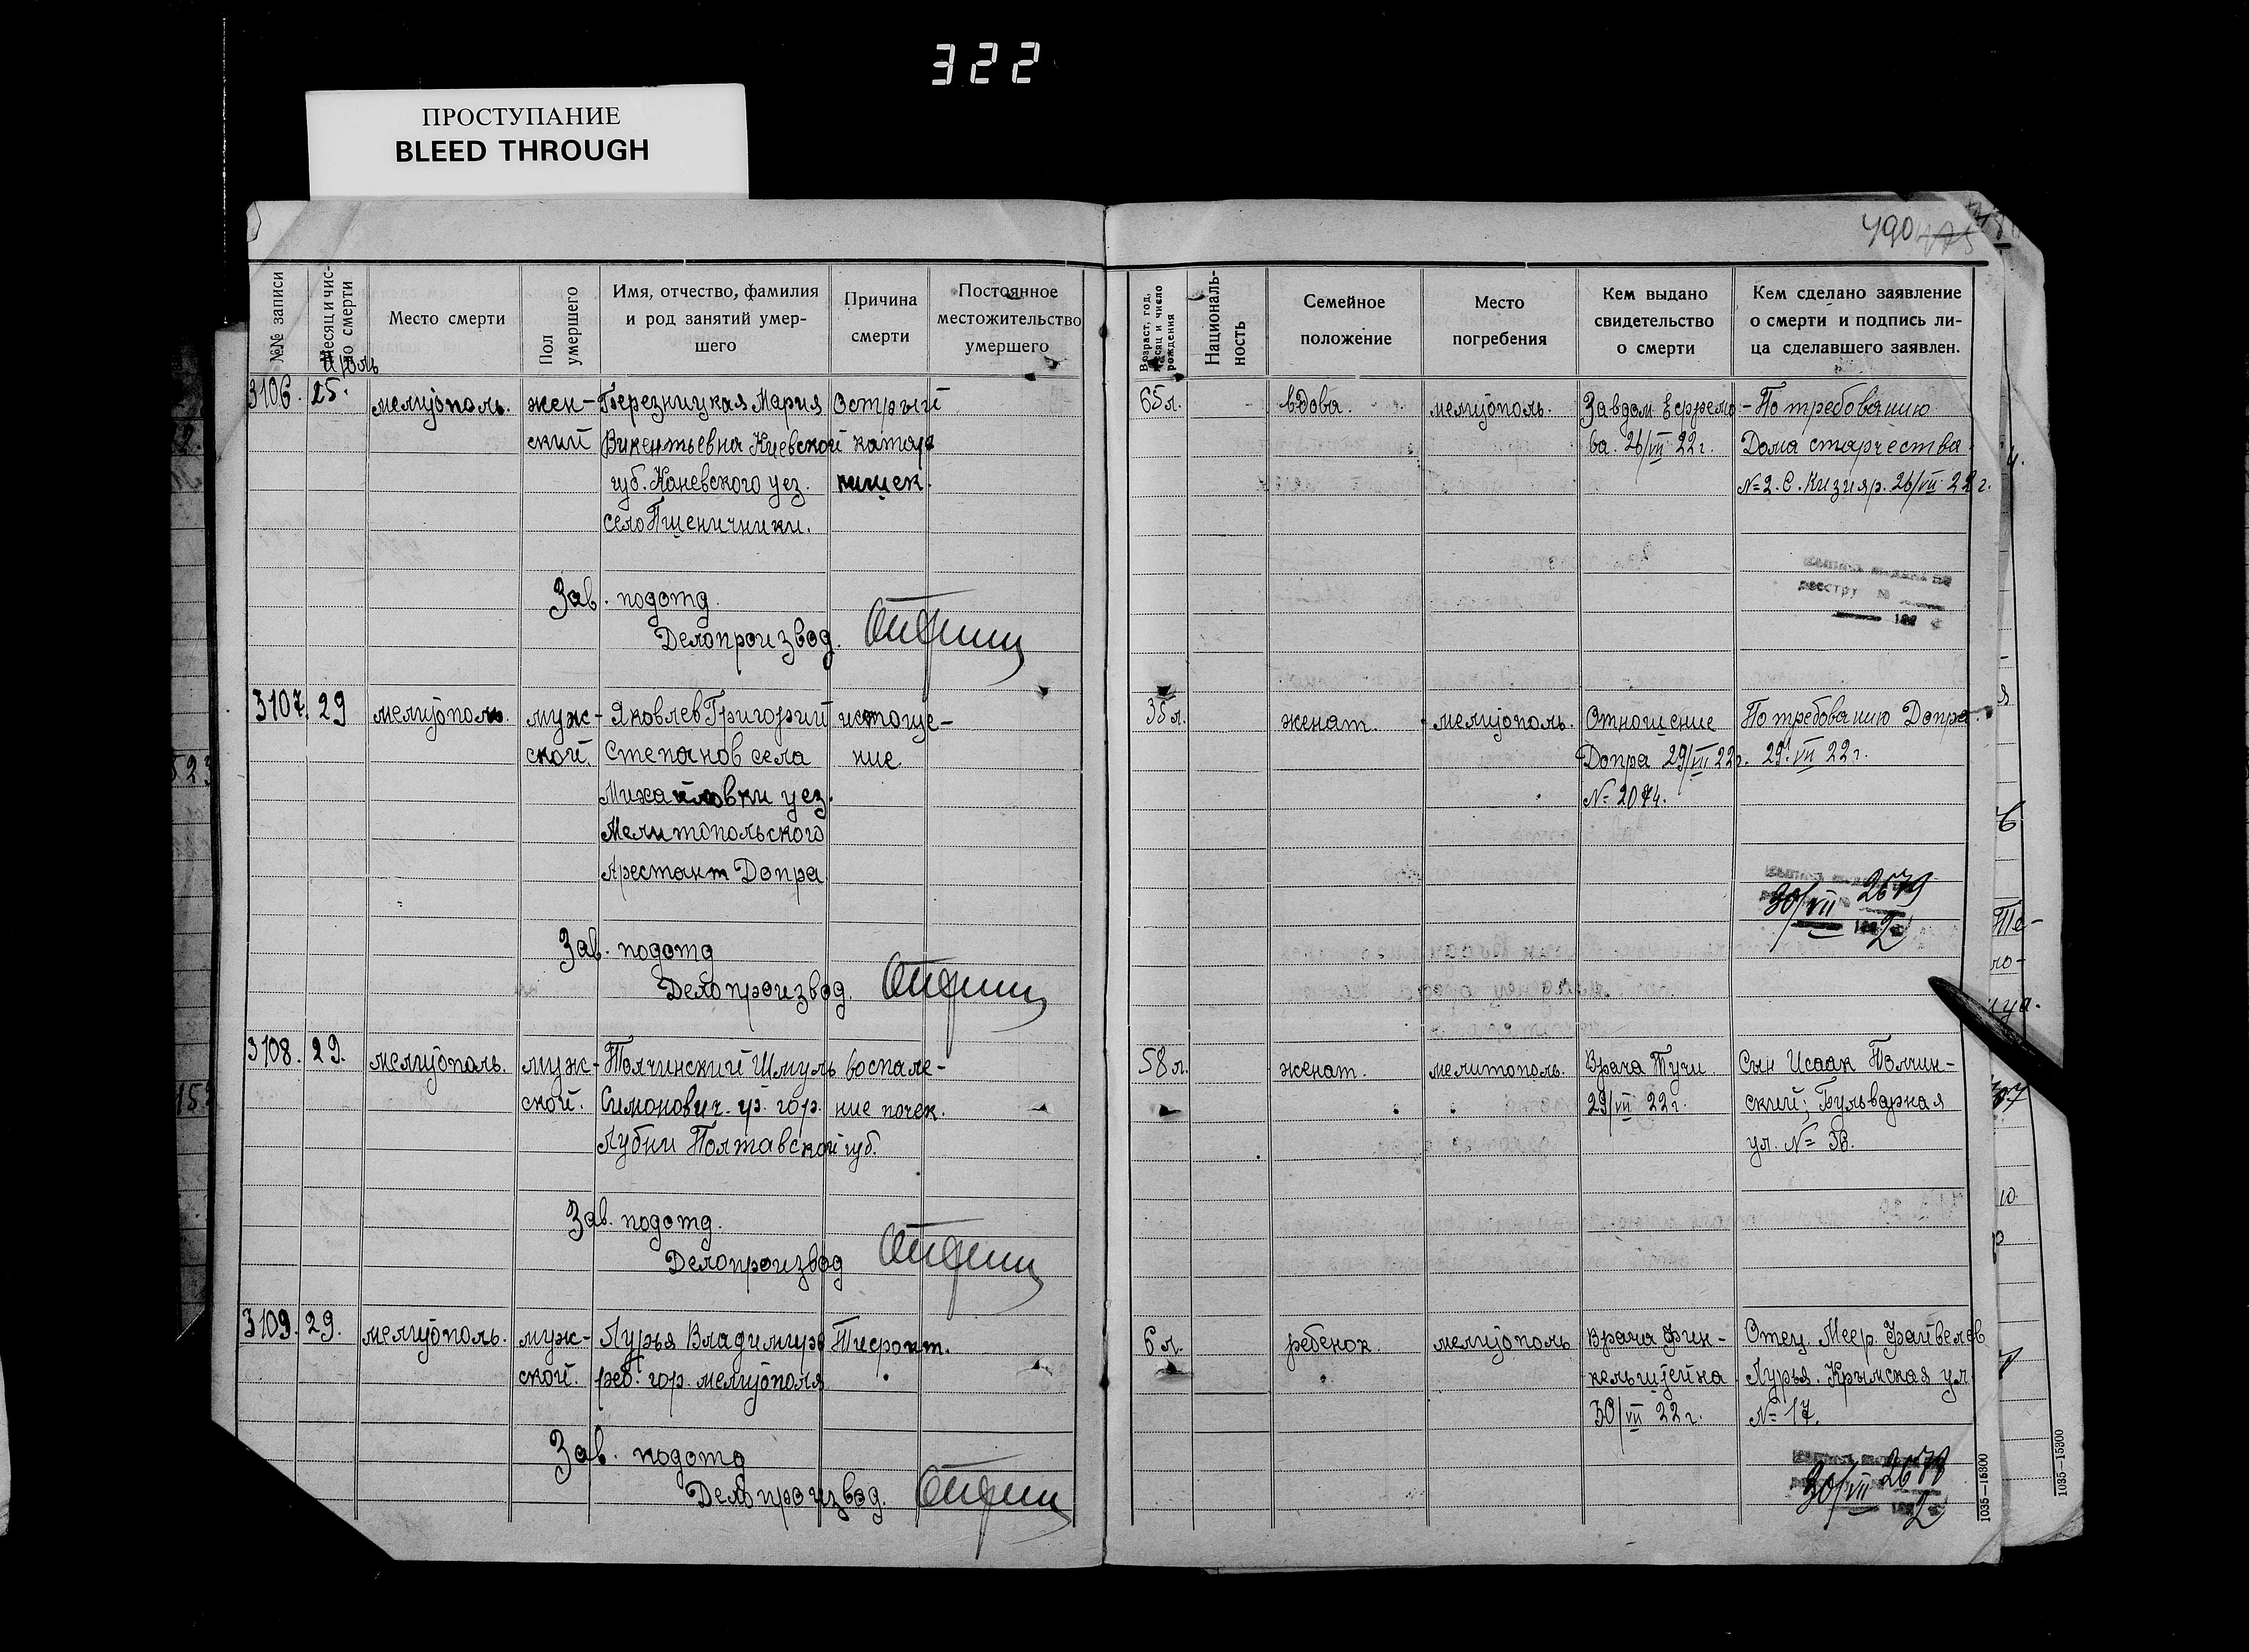 322
ПРОСТУПАНИЕ
BLEED THROUGH
490 475
№№ записи
Месяц и чис-
ло смерти
Место смерти
Пол
умершего
Имя, отчество, фамилия
и род занятий умер-
шего
Причина
смерти
Постоянное
местожительство
умершего
Возраст, год,
месяц и число
рождения
Националь-
ность
Семейное
положение
Место
погребения
Кем выдано
свидетельство
о смерти
Кем сделано заявление
о смерти и подпись ли-
ца сделавшего заявлен.
Июль
3106. 25. мелитополь. жен- Березницкая Мария Острый 65 л. вдова. мелитополь. Завдом Ефремо- По требованию
ский Викентьевна Киевской катар ва. 26/VII 22 г. Дома старчества
губ. Каневского уез. кишек. №2. С. Кизияр. 26/VII 22 г.
село Пшеничники.
Зав. подотд.
Делопроизвод.
3107. 29 мелитополь. муж- Яковлев Григорий истоще- 35 л. женат. мелитополь. Отношение По требованию Допра.
ской. Степанов села ние. Допра 29/VII 22 г. 29/VII 22 г.
Михайловки уез. № 2074.
Мелитопольского
Арестант Допра
30/VII 2679
2
Зав. подотд
Делопроизвод.
3108. 29. мелитополь. муж- Толчинский Шмуль воспале- 58 л. женат. мелитополь. Врача Тучи Сын Исаак Толчин-
ской. Симонович. гр. гор. ние почек. 29/VII 22 г. ский; Бульварная
Лубни Полтавской губ. ул. № 36.
Зав. подотд.
Делопроизвод
3109. 29. мелитополь. муж- Лурья Владимир Тиф 6 л. ребенок. мелитополь Врача Фин- Отец. Меер. Файвелев
ской. реб. гор. мелитополя кельштейна Лурья. Крымская ул
30/VII 22 г. № 17.
Зав. подотд
Делопроизвод.
30/VII 2678
2
1035—15300
1035—15300